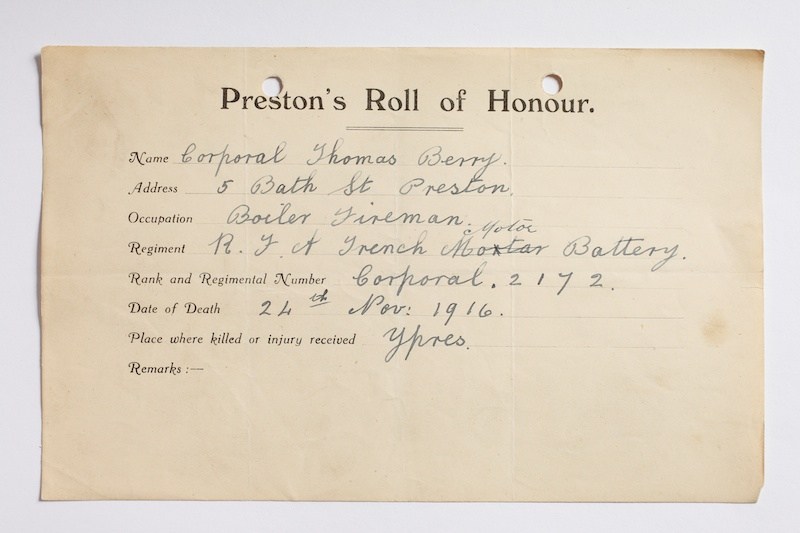 Preston's Roll of Honour.
Name Corporal Thomas Berry.
Address 5 Bath St Preston.
Occupation Boiler Fireman.
Motor
Regiment R. F. A Trench Mortar Battery.
Rank and Regimental Number Corporal. 2172.
Date of Death 24th Nov: 1916.
Place where killed or injury received Ypres.
Remarks :—